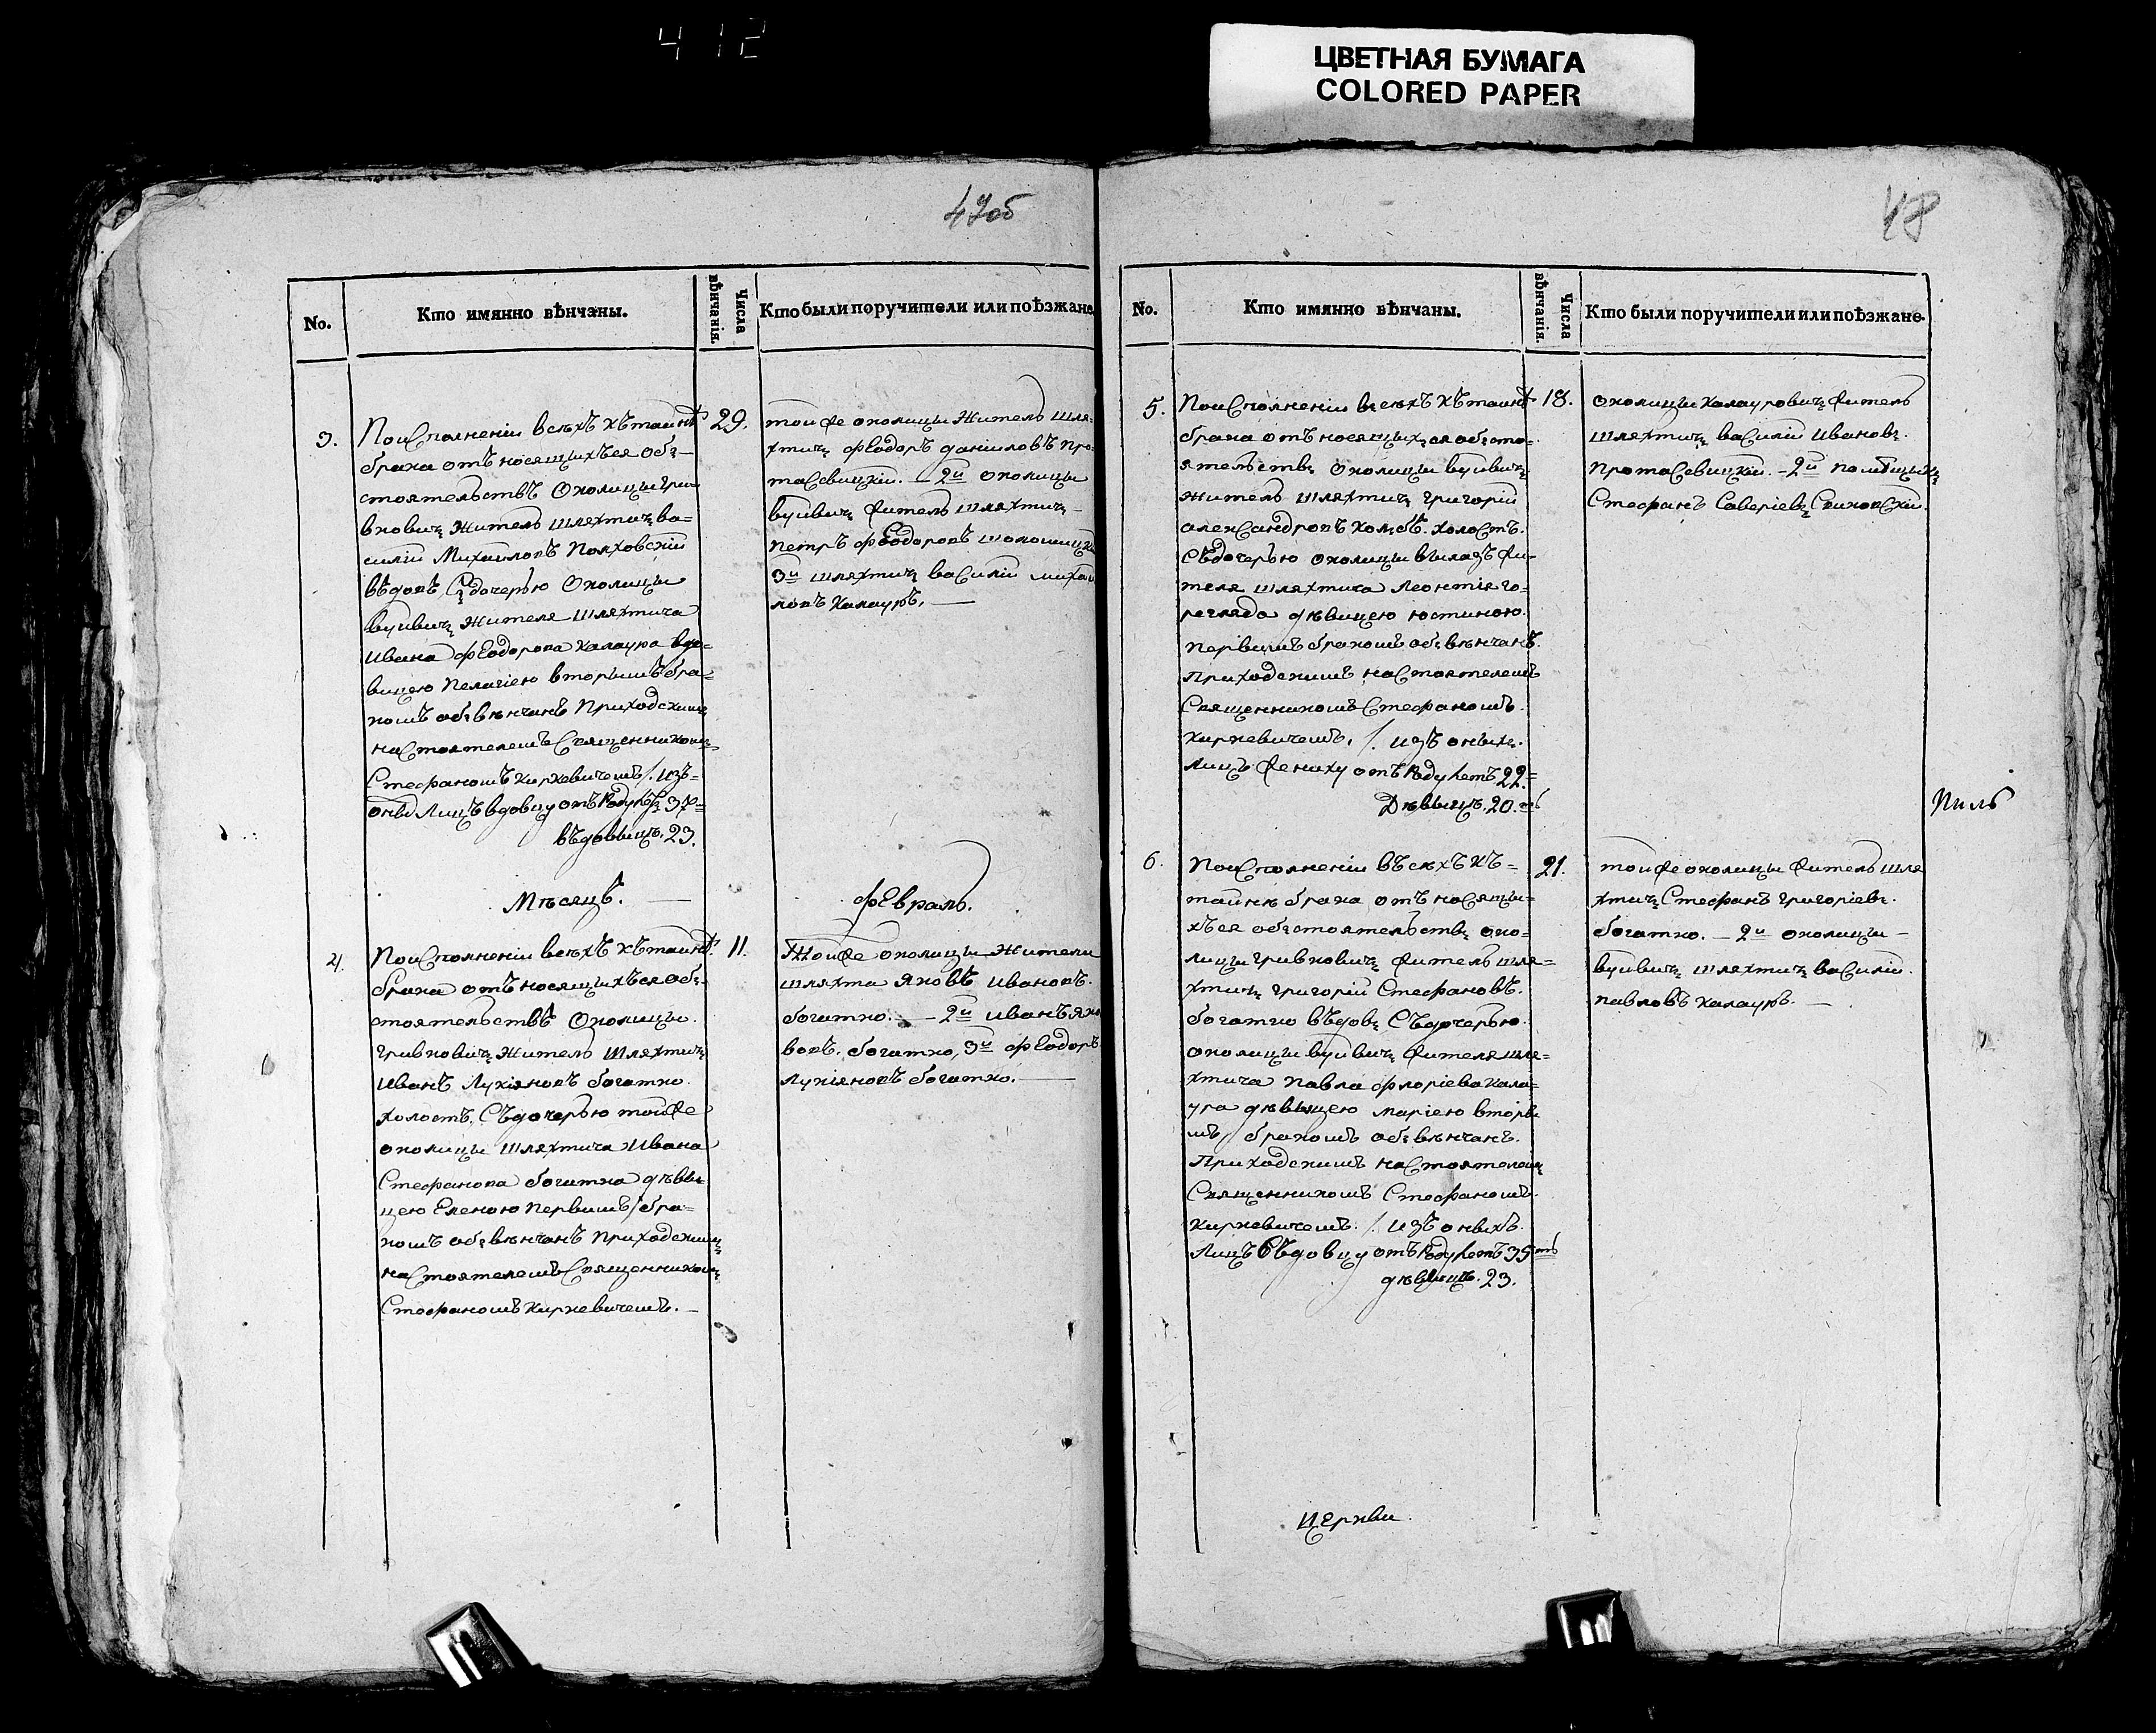 412
ЦВЕТНАЯ БУМАГА
COLORED PAPER
47об
No.
Кто имянно вѣнчаны.
Числа вѣнчанія.
Кто были поручители или поѣзжане.
3.
По исполненіи всѣхъ къ таинѣ
брака отъ носящихъся объ-
стоятельствъ Околицы Гри
вковичъ Житель шляхтичъ ва=
силій Михаиловъ Поляховскій
въдовъ, съ дочерью Околицы
вуивичъ жителя шляхтича
Ивана Феодорова Калаура вдо=
вицею Пелагіею вторымъ бра=
комъ объвѣнчанъ Приходскимъ
настоятелемъ Священникомъ
Стефаномъ Киркевичемъ /. Изъ=
Лицъ вдовцу отъ Роду лѣтъ 37=
въдовицѣ. 23.
29.
той же околицы житель шля-
хтичъ Феодоръ даніиловъ про=
тасевицкій. – 2й околицы
вуивичъ житель шляхтичъ –
Петръ Феодоровъ
3й шляхтичъ василій михаи
ловъ Калауръ. —
Мѣсяцъ. —
Февраль.
4.
По исполненіи всѣхъ къ таинѣ
брака отъ носящихъся объ-
стоятельствъ Околицы
гривковичъ житель шляхтичъ
Иванъ Лукіяновъ богатко
холостъ, съ дочерью той же
околицы шляхтича Ивана
Стефанова богатка дѣви
цею Еленою первымъ бра=
комъ объвѣнчанъ приходскимъ
настоятелемъ Священникомъ
Стефаномъ Киркевичемъ. –
11.
Той же околицы Жители
шляхта Яковъ Ивановъ.
богатко. – 2й иванъ яко
вовъ. богатко, 3й Феодоръ
Лукіяновъ богатко. —
48
No.
Кто имянно вѣнчаны.
Числа вѣнчанія.
Кто были поручители или поѣзжане.
5.
По исполненіи всѣхъ къ таинѣ
брака отъ носящихся объсто-
ятельствъ Околицы вуивичъ
житель шляхтичъ григорій
александровъ холостъ.
съ дочерью околицы жи-
теля шляхтича Леонтія го-
регляда дѣвицею юстиною.
первымъ бракомъ объвѣнчанъ.
Приходскимъ настоятелемъ
Священникомъ Стефаномъ.
Киркевичемъ. /. изъ оныхъ.
Лицъ жениху отъ Роду лѣтъ 22=
Дѣвицѣ. 20.
18.
околицы калауровичъ житель
шляхтичъ василій Ивановъ.
протасевицкій. – 2й помѣщикъ
Стефанъ Саверіевъ
6.
По исполненіи въсѣхъ къ=
таинѣ брака отъ носящи=
хъся объстоятельствъ око=
лицы гривковичъ житель шля=
хтичъ григорій Стефановъ.
богатко въдовъ съ дочерью
околицы вуивичъ жителя шля=
хтича павла флоріева Кала=
ура дѣвицею маріею вторы
мъ бракомъ объвѣнчанъ.
Приходскимъ настоятелемъ
Священникомъ Стефаномъ.
Киркевичемъ. /. изъ оныхъ.
Лицъ въдовцу отъ Роду лѣтъ 35
дѣвицѣ. 23.
21.
той же околицы житель шля
хтичъ Стефанъ григоріевъ.
богатко. – 2й околицы –
вуивичъ шляхтичъ василій
павловъ калауръ. –
Церкви